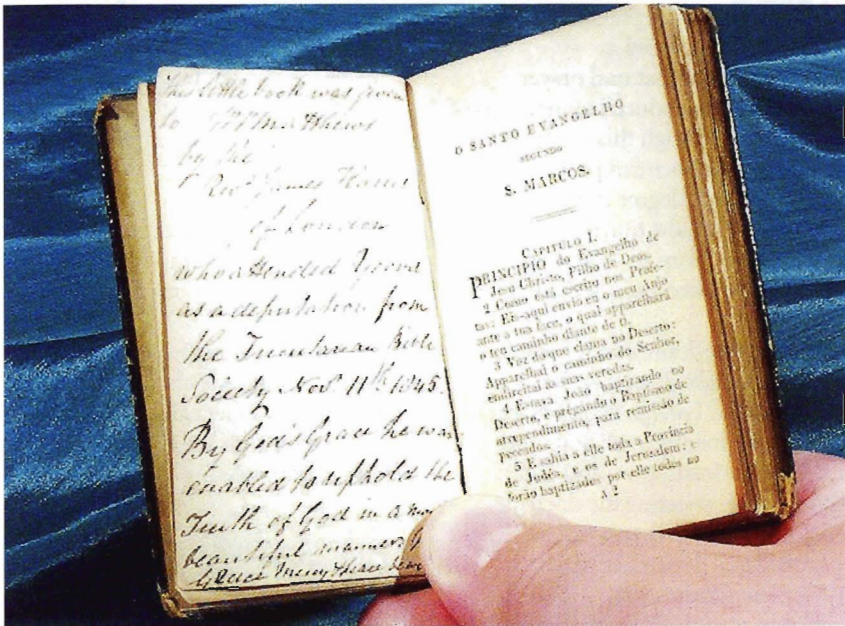 This little book was given
to Wm Matthews
by the
Revd James
of London
who attended
as a deputation from
the Trinitarian Bible
Society Novr 11th 1845.
By God's Grace he was
enabled to uphold the
Truth of God in a
beautiful manner
Grace Mercy Peace be
O SANTO EVANGELHO
SEGUNDO
S. MARCOS.
CAPITULO I.
PRINCIPIO do Evangelho de
Jesu Christo, Filho de Deos.
2 Como está escrito nos Profe-
tas: Eis-aqui envio eu o meu Anjo
ante a tua face, o qual apparelhará
o teu caminho diante de ti.
3 Voz do que clama no Deserto:
Apparelhai o caminho do Senhor,
endireitai as suas veredas.
4 Estava João baptizando no
Deserto, e prégando o Baptismo de
arrependimento, para remissão de
peccados.
5 E sahia a elle toda a Provincia
de Judéa, e os de Jerusalem: e
forão baptizados por elle todos no
A 2